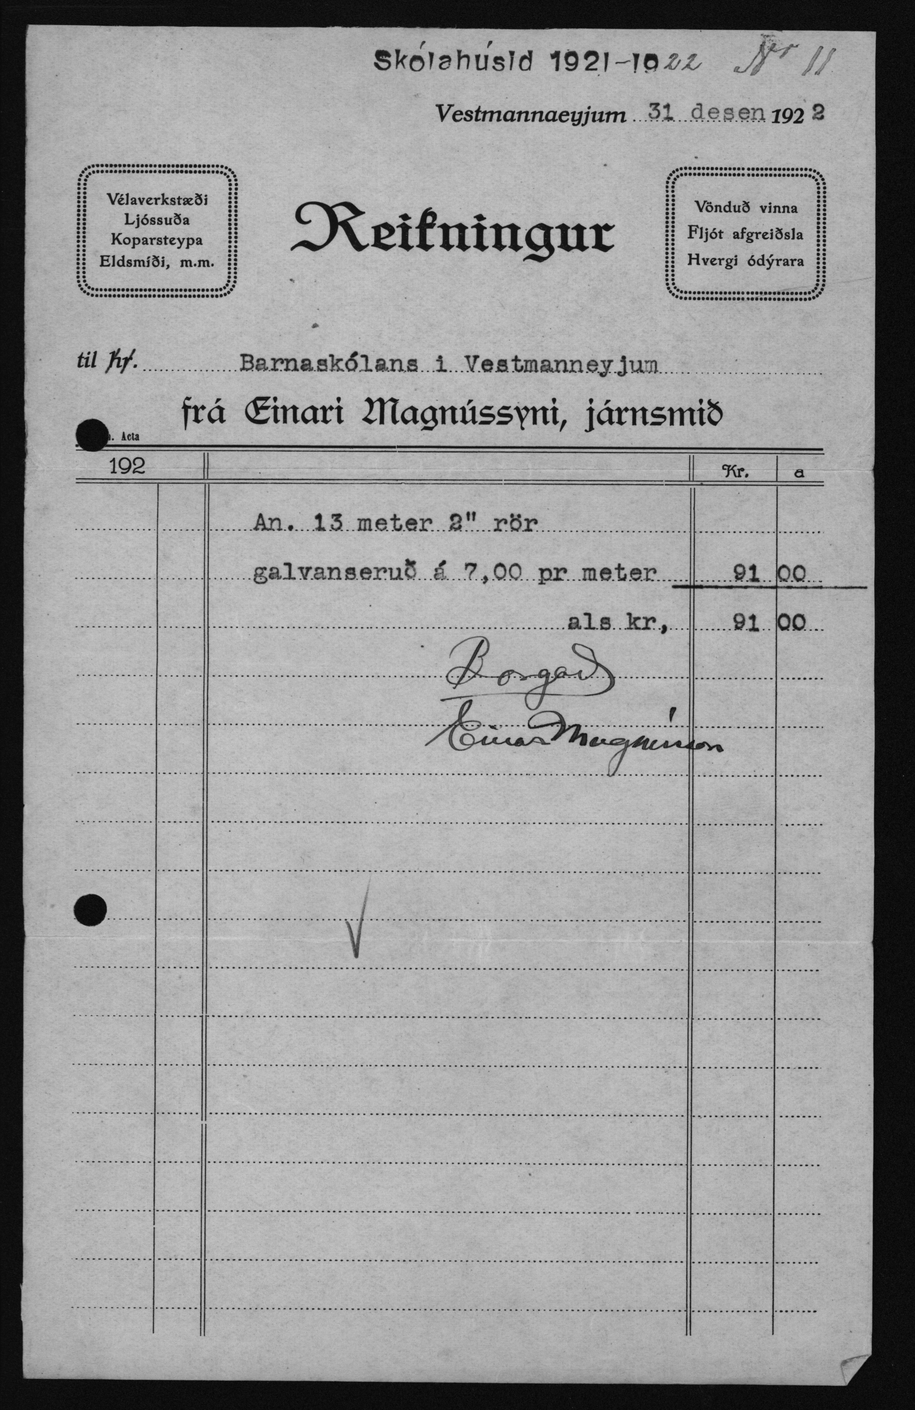 Skólahúsid 1921-1922 Nr 11
Vestmannaeyjum 31 desen 1922
Vélaverkstæði
Ljóssuða
Koparsteypa
Eldsmíði, m.m.
Reikningur
Vönduð vinna
Fljót afgreiðsla
Hvergi ódýrara
til hr. Barnaskólans i Vestmanneyjum
frá Einari Magnússyni, járnsmið
Acta
192 Kr. a
An. 13 meter 2" rör
galvanseruð á 7,00 pr meter 91 00
als kr, 91 00
Borgað
Einar Magnússon